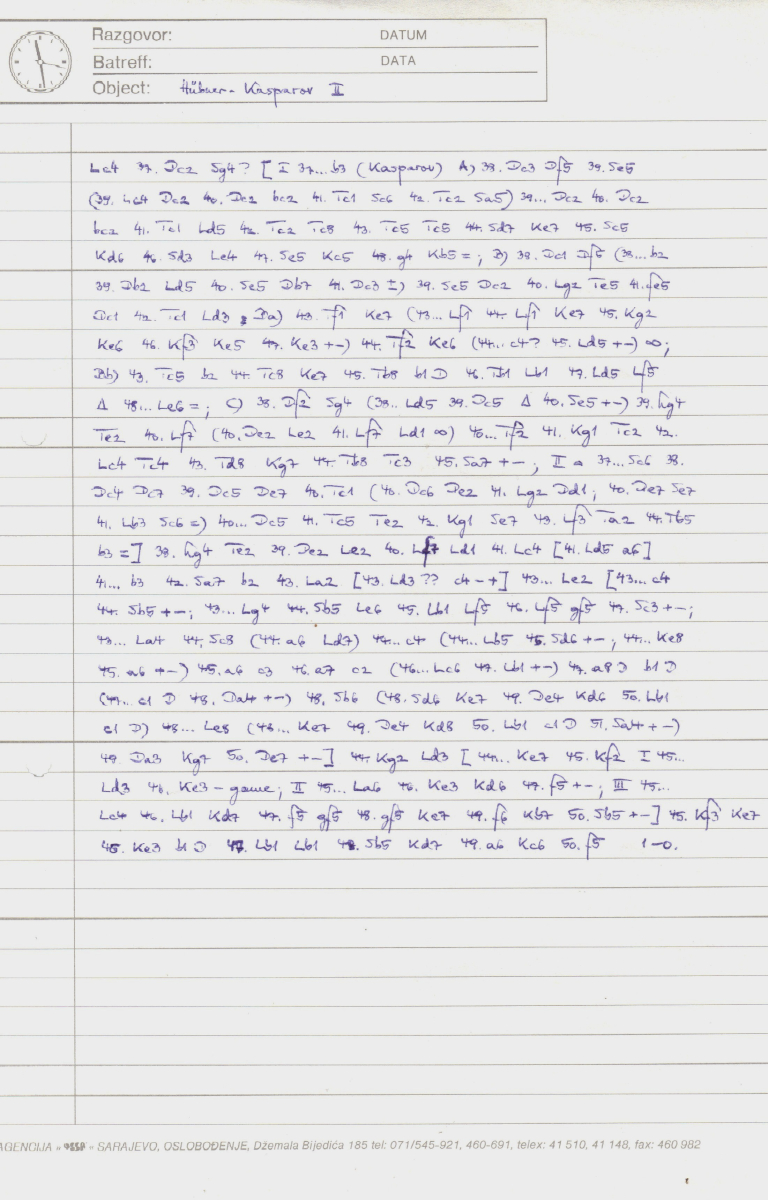 Razgovor: DATUM
Batreff: DATA
Object: Hübner - Kasparov II
Lc4 37. Dc2 Sg4? [I 37...b3 (Kasparov) A) 38. Dc3 Df5 39. Se5
(39. Lc4 Dc2 40. Dc2 bc2 41. Tc1 Sc6 42. Tc2 Sa5) 39... Dc2 40. Dc2
bc2 41. Tc1 Ld5 42. Tc2 Tc8 43. Tc5 Tc5 44. Sd7 Ke7 45. Sc5
Kd6 46. Sd3 Le4 47. Se5 Kc5 48. g4 Kb5 = ; B) 38. Dc1 Df5 (38... b2
39. Db2 Ld5 40. Se5 Db7 41. Dc3 ±) 39. Se5 Dc2 40. Lg2 Te5 41. fe5
Dc1 42. Tc1 Ld3 Ba) 43. Tf1 Ke7 (43... Lf1 44. Lf1 Ke7 45. Kg2
Ke6 46. Kf3 Ke5 47. Ke3 +-) 44. Tf2 Ke6 (44... c4? 45. Ld5 +-) ∞;
Bb) 43. Tc5 b2 44. Tc8 Ke7 45. Tb8 b1D 46. Tb1 Lb1 47. Ld5 Lf5
Δ 48... Le6 = ; C) 38. Df2 Sg4 (38... Ld5 39. Dc5 Δ 40. Se5 +-) 39. hg4
Te2 40. Lf7 (40. De2 Le2 41. Lf7 Ld1 ∞) 40... Tf2 41. Kg1 Tc2 42.
Lc4 Tc4 43. Td8 Kg7 44. Tb8 Tc3 45. Sa7 +- ; II 37...Sc6 38.
Dc4 Dc7 39. Dc5 De7 40. Tc1 (40. Dc6 De2 41. Lg2 Dd1; 40. De7 Se7
41. Lb3 Sc6 =) 40... Dc5 41. Tc5 Te2 42. Kg1 Se7 43. Lf3 Ta2 44. Tb5
b3 =] 38. hg4 Te2 39. De2 Le2 40. Lf7 Ld1 41. Lc4 [41. Ld5 a6]
41... b3 42. Sa7 b2 43. La2 [43. Ld3?? c4 -+] 43... Le2 [43... c4
44. Sb5 +- ; 43... Lg4 44. Sb5 Le6 45. Lb1 Lf5 46. Lf5 gf5 47. Sc3 +- ;
43... La4 44. Sc8 (44. a6 Ld7) 44... c4 (44... Lb5 45. Sd6 +- ; 44... Ke8
45. a6 +-) 45. a6 c3 46. a7 c2 (46... Lc6 47. Lb1 +-) 47. a8D b1D
(47... c1D 48. Da4 +-) 48. Sb6 (48. Sd6 Ke7 49. De4 Kd6 50. Lb1
c1D) 48... Le8 (48... Ke7 49. De4 Kd8 50. Lb1 c1D 51. Sa4 +-)
49 Da3 Kg7 50. De7 +-] 44. Kg2 Ld3 [44... Ke7 45. Kf2 I 45...
Ld3 46. Ke3 - game; II 45... La6 46. Ke3 Kd6 47. f5 +- ; III 45...
Lc4 46. Lb1 Kd7 47. f5 gf5 48. gf5 Ke7 49. f6 Kb7 50. Sb5 +-] 45. Kf3 Ke7
46. Ke3 b1D 47. Lb1 Lb1 48. Sb5 Kd7 49. a6 Kc6 50. f5 1-0.
AGENCIJA » « SARAJEVO, OSLOBOĐENJE, Džemala Bijedića 185 tel: 071/545-921, 460-691, telex: 41 510, 41 148, fax: 460 982